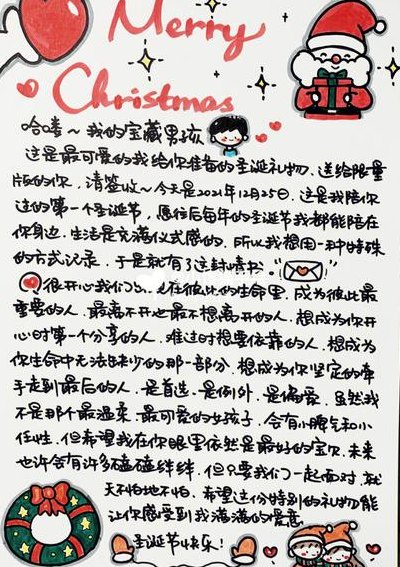 Merry
Christmas
哈喽～我的宝藏男孩
这是最可爱的我给你准备的圣诞礼物，送给限量
版的你，请签收～今天是2021年12月25日，这是我陪你
过的第一个圣诞节，愿往后每年的圣诞节我都能陪在
你身边，生活是充满仪式感的，所以我想用一种特殊
的方式记录，于是就有了这封情书。
很开心我们出现在彼此的生命里，成为彼此最
重要的人，最离不开也最不想离开的人，想成为你开
心时第一个分享的人，难过时想要依靠的人，想成为
你生命中无法缺少的那一部分，想成为你坚定的牵
手走到最后的人，是首选，是例外，是偏爱，虽然我
不是那个最温柔，最可爱的女孩子，会有小脾气和小
任性，但希望我在你眼里依然是最好的宝贝，未来
也许会有许多磕磕绊绊，但只要我们一起面对，就
天不怕地不怕，希望这份特别的礼物能
让你感受到我满满的爱意
圣诞节快乐！